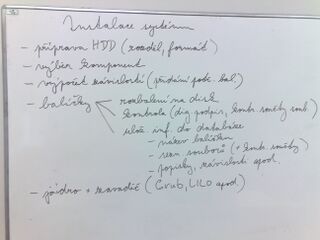 Instalace systému
- příprava HDD (rozděl, formát)
- výběr komponent
- výpočet závislostí (přidání potř. bal.)
- balíčky rozbalení na disk
kontrola (dig. podpis, kontr. součty soub.)
ulož. inf. do databáze
- název balíčku
- sezn. souborů (+ kontr. součty)
- popisky, závislosti apod.
- jádro + zavaděč (Grub, LILO apod.)